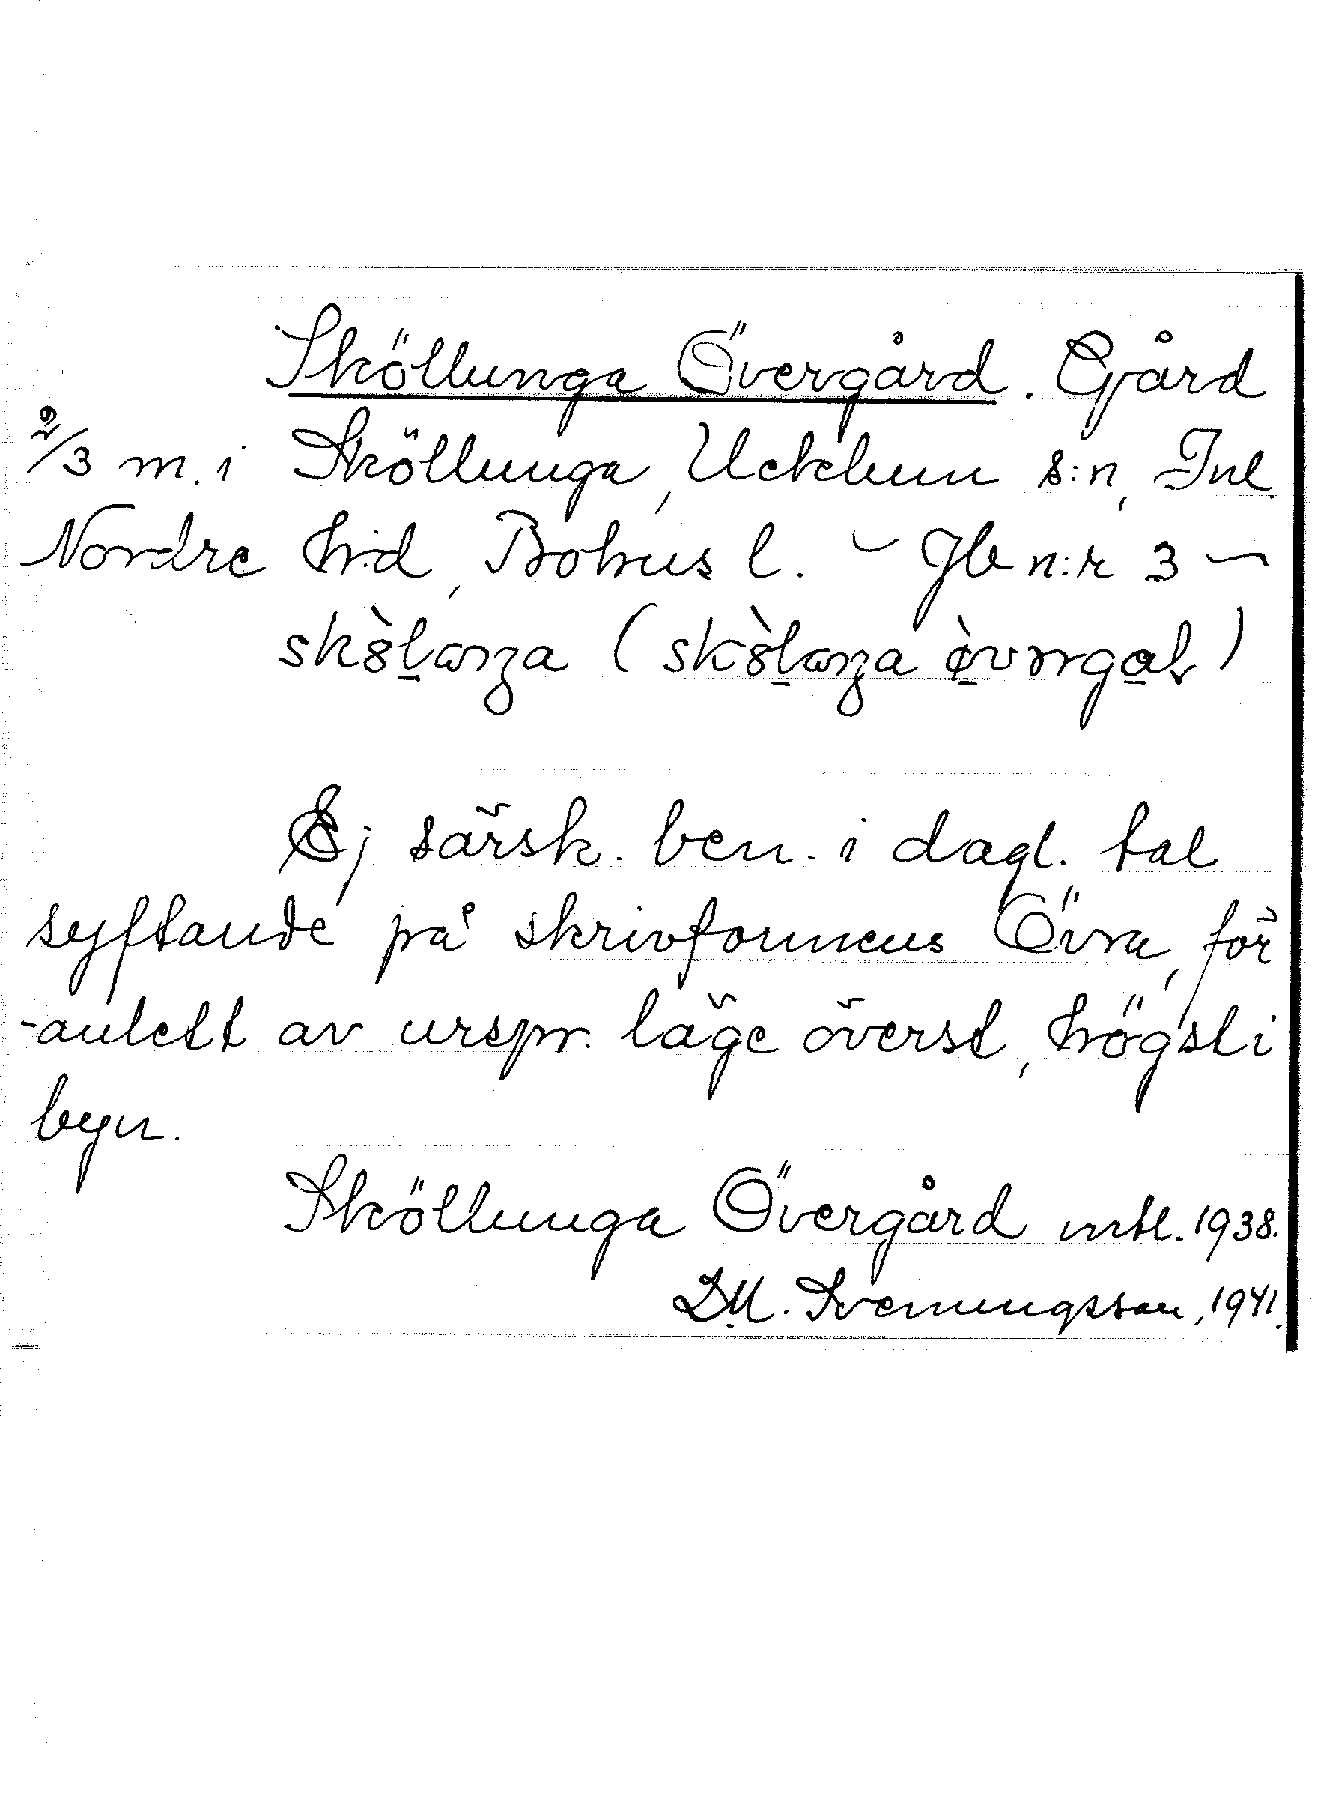 Sköllunga Övergård. Gård
2/3 m. i Sköllunga, Ucklum s:n, Inl
Nordre h:d, Bohus l. – Jb n:r 3 –
Ej särsk. ben. i dagl. tal
syftande på skrivformens Övra, för
-anlett av urspr. läge överst, högst i
byn.
Sköllunga Övergård mtl. 1938.
D.M. Svenningsson, 1941.